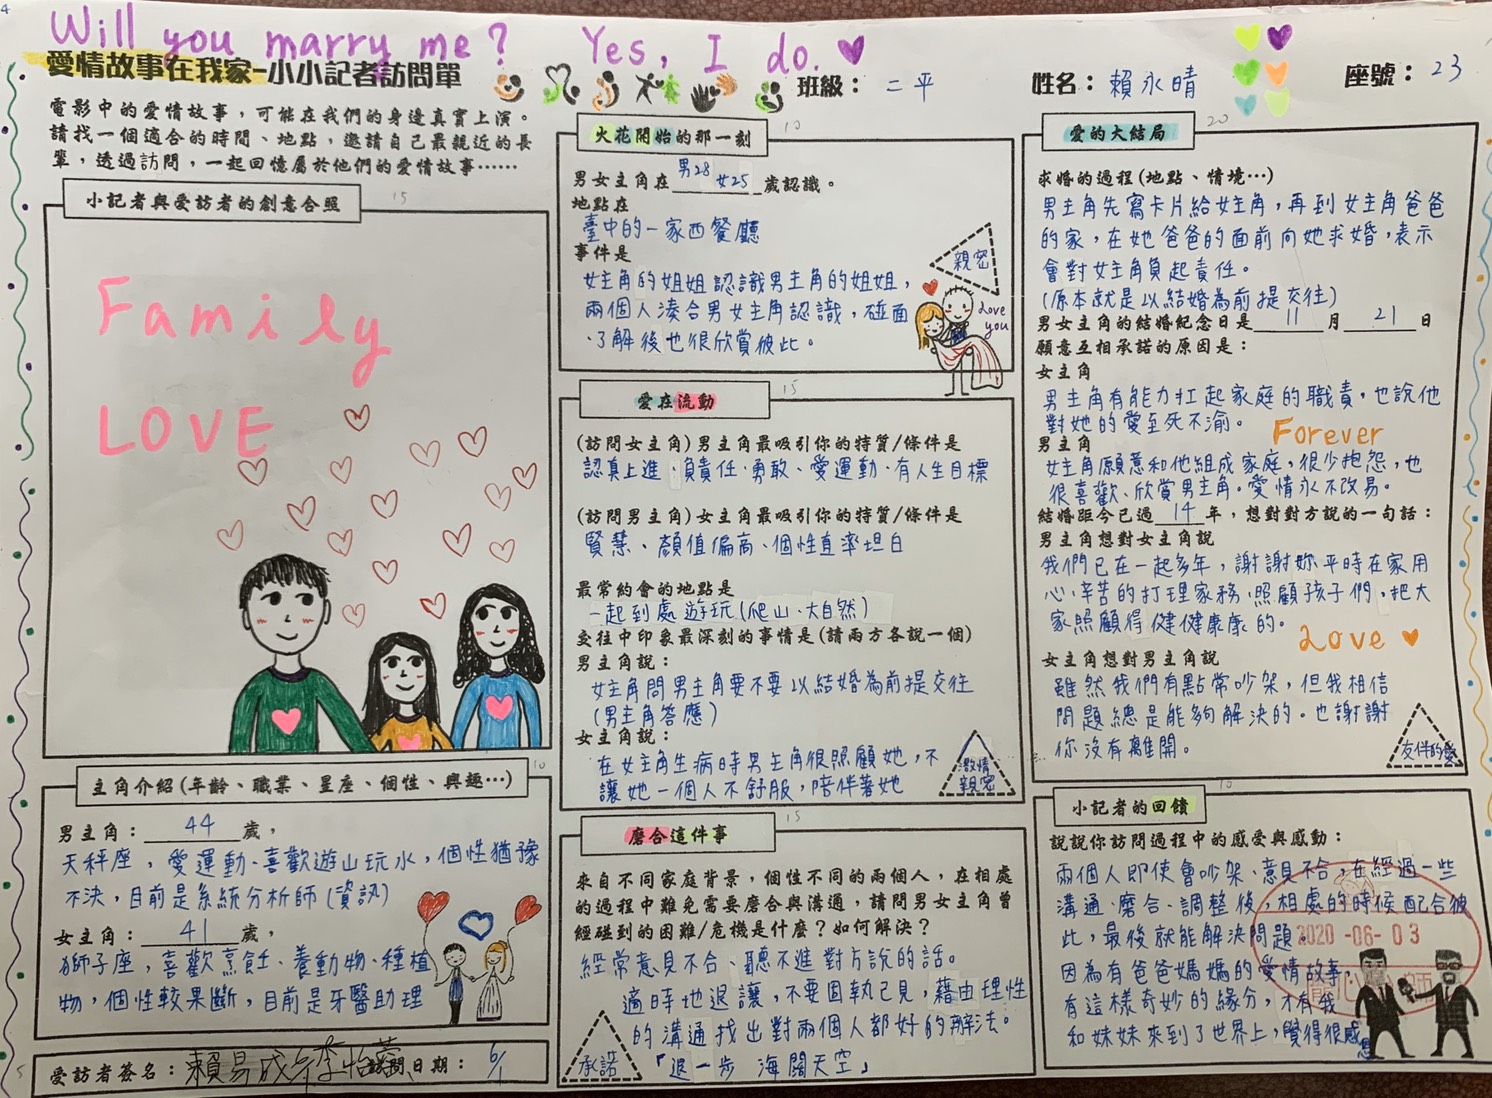 Will you marry me? Yes, I do.
愛情故事在我家-小小記者訪問單
班級：二平
姓名：賴永晴
座號：23
電影中的愛情故事，可能在我們的身邊真實上演。
請找一個適合的時間、地點，邀請自己最親近的長
輩，透過訪問，一起回憶屬於他們的愛情故事……
小記者與受訪者的創意合照
15
Family
LOVE
主角介紹(年齡、職業、星座、個性、興趣…)
10
男主角：44歲，
天秤座，愛運動、喜歡遊山玩水，個性猶豫
不決，目前是系統分析師(資訊)
女主角：41歲，
獅子座，喜歡烹飪、養動物、種植
物，個性較果斷，目前是牙醫助理
受訪者簽名：賴易成
日期：6/1
火花開始的那一刻
10
男女主角在男28 女25歲認識。
地點在
臺中的一家西餐廳
事件是
女主角的姐姐認識男主角的姐姐，
兩個人湊合男女主角認識，碰面
、了解後也很欣賞彼此。
親密
Love
you
愛在流動
15
(訪問女主角)男主角最吸引你的特質/條件是
認真上進、負責任、勇敢、愛運動、有人生目標
(訪問男主角)女主角最吸引你的特質/條件是
賢慧、顏值偏高、個性直率坦白
最常約會的地點是
一起到處遊玩(爬山、大自然)
交往中印象最深刻的事情是(請兩方各說一個)
男主角說：
女主角問男主角要不要以結婚為前提交往
(男主角答應)
女主角說：
在女主角生病時男主角很照顧她，不
讓她一個人不舒服，陪伴著她
激情
親密
磨合這件事
15
來自不同家庭背景，個性不同的兩個人，在相處
的過程中難免需要磨合與溝通，請問男女主角曾
經碰到的困難/危機是什麼？如何解決？
經常意見不合、聽不進對方說的話。
適時地退讓，不要固執己見，藉由理性
的溝通找出對兩個人都好的解法。
「退一步 海闊天空」
承諾
愛的大結局
20
求婚的過程(地點、情境…)
男主角先寫卡片給女主角，再到女主角爸爸
的家，在她爸爸的面前向她求婚，表示
會對女主角負起責任。
(原本就是以結婚為前提交往)
男女主角的結婚紀念日是11月21日
願意互相承諾的原因是：
女主角
男主角有能力扛起家庭的職責，也說他
對她的愛至死不渝。
Forever
男主角
女主角願意和他組成家庭，很少抱怨，也
很喜歡、欣賞男主角。愛情永不改易。
結婚距今已過14年，想對對方說的一句話：
男主角想對女主角說
我們已在一起多年，謝謝妳平時在家用
心、辛苦的打理家務、照顧孩子們，把大
家照顧得健健康康的。
Love
女主角想對男主角說
雖然我們有點常吵架，但我相信
問題總是能夠解決的。也謝謝
你沒有離開。
友伴的愛
小記者的回饋
10
說說你訪問過程中的感受與感動：
兩個人即使會吵架、意見不合，在經過一些
溝通、磨合、調整後，相處的時候配合彼
此，最後就能解決問題。
2020 -06- 03
因為有爸爸媽媽的愛情故事，
有這樣奇妙的緣分，才有我
和妹妹來到了世界上，覺得很感
恩